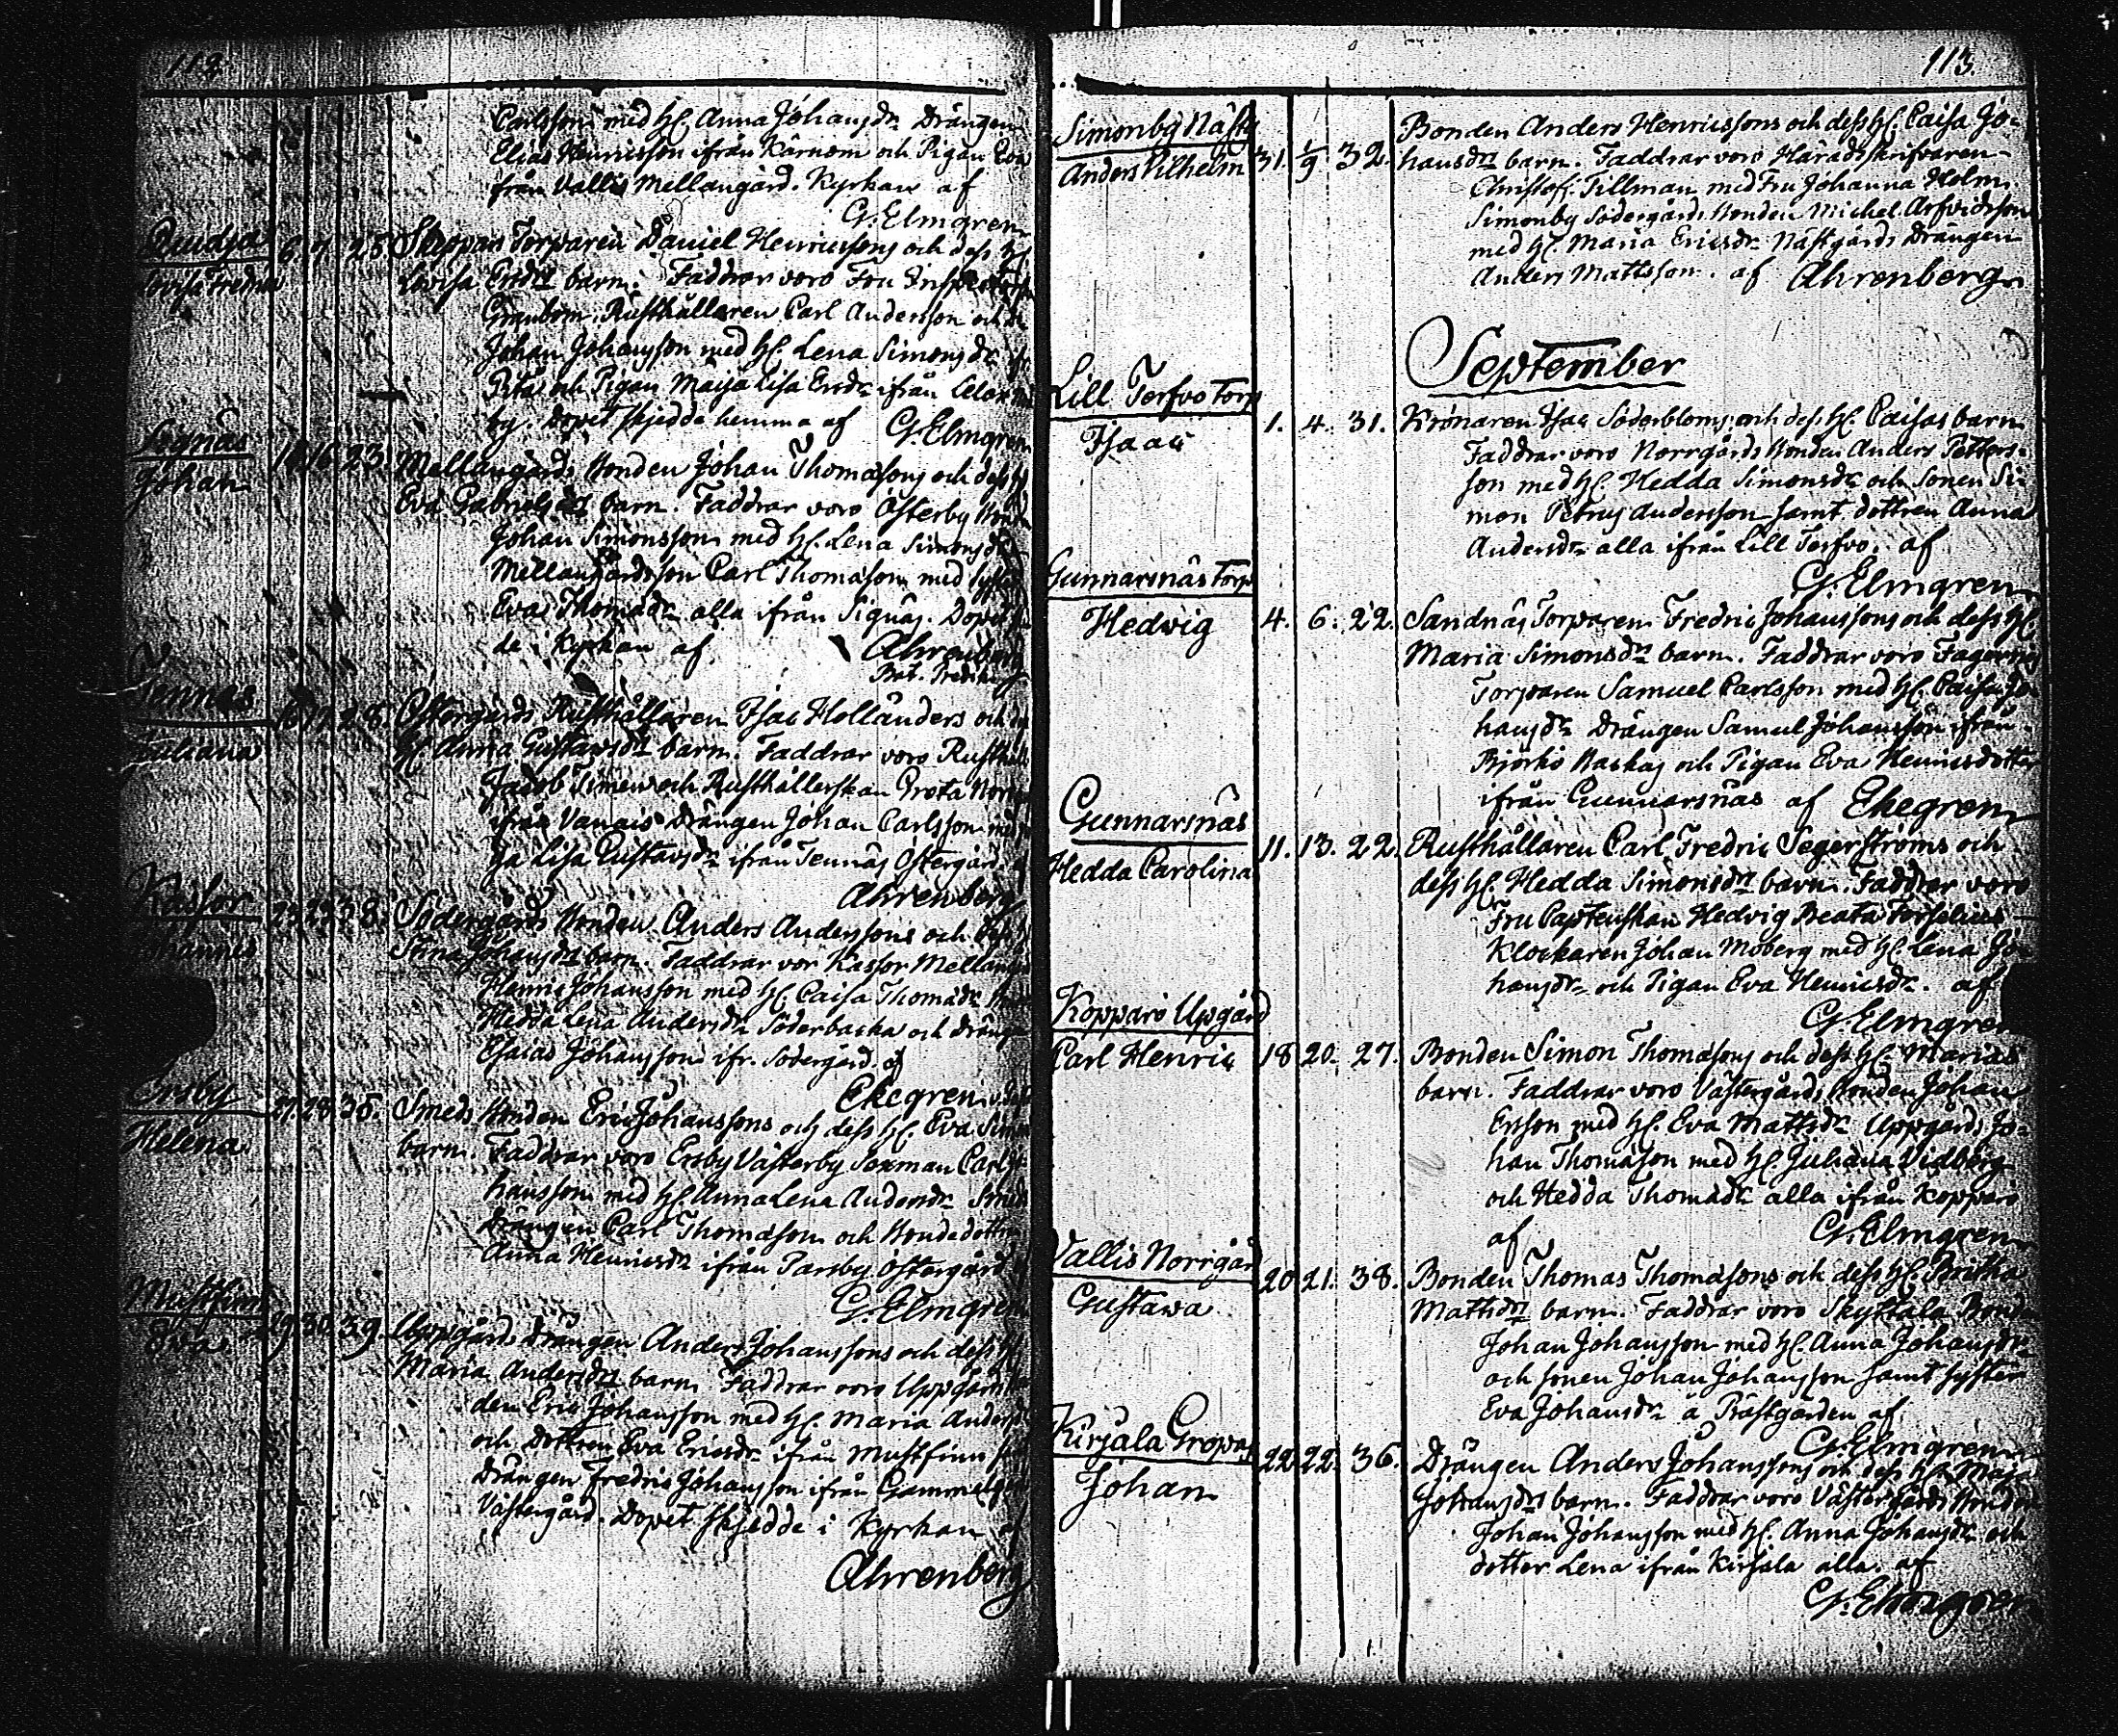 112
Carlsson med H. Anna Johansdr Drängen
Elias Henricsson ifrån Kärnom och Pigan Eva
från Vallis Mellangård. Kyrkan af
G. Elmgren
Lovisa Fredrica
6. 7. 25. Torparen Daniel Henricssons och dess H.
Lovisa Ersdrs barn. Faddrar voro Fru
Granbom. Rusthållaren Carl Andersson och
Johan Johansson med H. Lena Simonsdr
och Pigan Maija Lisa Ersdr ifrån
by. Dopet skjedde hemma af G. Elmgren
Signäs
Johan
16. 23. Mellangårds Bonden Johan Thomassons och dess H.
Eva Gabrielsdrs barn. Faddrar voro Österby
Johan Simonsson med H. Lena Simonsdr
Mellangårdsson Carl Thomason med syster
Eva Thomadr alla ifrån Signäs. Dopet
de i Kyrkan af Ahrenberg
Tennäs
Juliana
28. Östergårds Rusthållaren Isac Hollanders och
H. Anna Gustavsdrs barn. Faddrar voro
Jacob Simen och Rusthållerskan Greta
ifrån Vanais Drängen Johan Carlsson
Lisa Gustavsdr ifrån Tennäs Östergård
Ahrenberg
Kassor
Johannes
38. Södergårds Bonden Anders Anderssons och
Stina Johansdrs barn. Faddrar vor Kassor
Henric Johansson med H. Caisa Thomadr
Hedda Lena Andersdr Söderbacka och
Esaias Johansson ifr. Södergård. af
Ekegren
Ersby
Helena
27. 28. 35. Smeds Bonden Eric Johanssons och dess H. Eva
barn. Faddrar voro Ersby Västerby Sexman Carl
hansson med H. Anna Lena Andersdr
Drängen Carl Thomason och Bondedottren
Anna Henricsdr ifrån Parsby Östergård
G. Elmgren
Mustfinn
Eva
29. 30. 39. Uppgårds Drängen Anders Johanssons och dess H.
Maria Andersdrs barn. Faddrar voro Uppgårds
den Eric Johansson med H. Maria
och Dottren Eva Ericsdr ifrån Mustfinn
Drängen Fredric Johansson ifrån
Västergård. Dopet skjedde i Kyrkan af
Ahrenberg
113.
Simonby Nästg
Anders Vilhelm
31. 1/9 32. Bonden Anders Henricssons och dess H. Caisa Jo-
hansdrs barn. Faddrar voro Häradsskrifvaren
Christof. Tillman med Fru Johanna Holm.
Simonby Södergårds Bonden Michel Arfvidsson
med H. Maria Ericsdr Nästgårds Drängen
Anders Mattsson. af Ahrenberg
September
Lill Terfvo Torp
Isaac
1. 4. 31. Krönaren Isac Söderbloms och dess H. Caisas barn
Faddrar voro Norrgårds Bonden Anders Petters-
son med H. Hedda Simonsdr och Sonen Si-
mon Petrus Andersson samt dottren Anna
Andersdr alla ifrån Lill Terfvo. af
G. Elmgren
Gunnarsnäs Torp
Hedwig
4. 6. 22. Sandnäs Torparen Fredric Johanssons och dess H.
Maria Simonsdrs barn. Faddrar voro
Torparen Samuel Carlsson med H. Caisa Jo-
hansdr Drängen Samuel Johansson ifrån
Björkö och Pigan Eva Henricsdotter
ifrån Gunnarsnäs af Ekegren
Gunnarsnäs
Hedda Carolina
11. 13. 22. Rusthållaren Carl Fredric Segerströms och
dess H. Hedda Simonsdrs barn. Faddrar voro
Fru Captenskan Hedvig Beata Forselius
Klockaren Johan Moberg med H. Lena Jo-
hansdr och Pigan Eva Henricsdr. af
G. Elmgren
Kopparö Upgård
Carl Henric
18 20. 27. Bonden Simon Thomasons och dess H. Marias
barn. Faddrar voro Västergårds Bonden Johan
Ersson med H. Eva Mattsdr Uppgårds Jo-
han Thomason med H. Juliana Vidberg
och Hedda Thomadr alla ifrån Kopparö
af G. Elmgren
Vallis Norrgård
Gustawa
20 21. 38. Bonden Thomas Thomasons och dess H. Britha
Mattsdrs barn. Faddrar voro Skyttala Bonden
Johan Johansson med H. Anna Johansdr
och sonen Johan Johansson samt syster
Eva Johansdr å Prästgården af
G. Elmgren
Kirjala Gropas
Johan
22 22. 36. Drängen Anders Johanssons och dess H. Maja
Johansdrs barn. Faddrar voro Västergårds Bonden
Johan Johansson med H. Anna Johansdr och
dotter Lena ifrån Kirjala alla. af
G. Elmgren